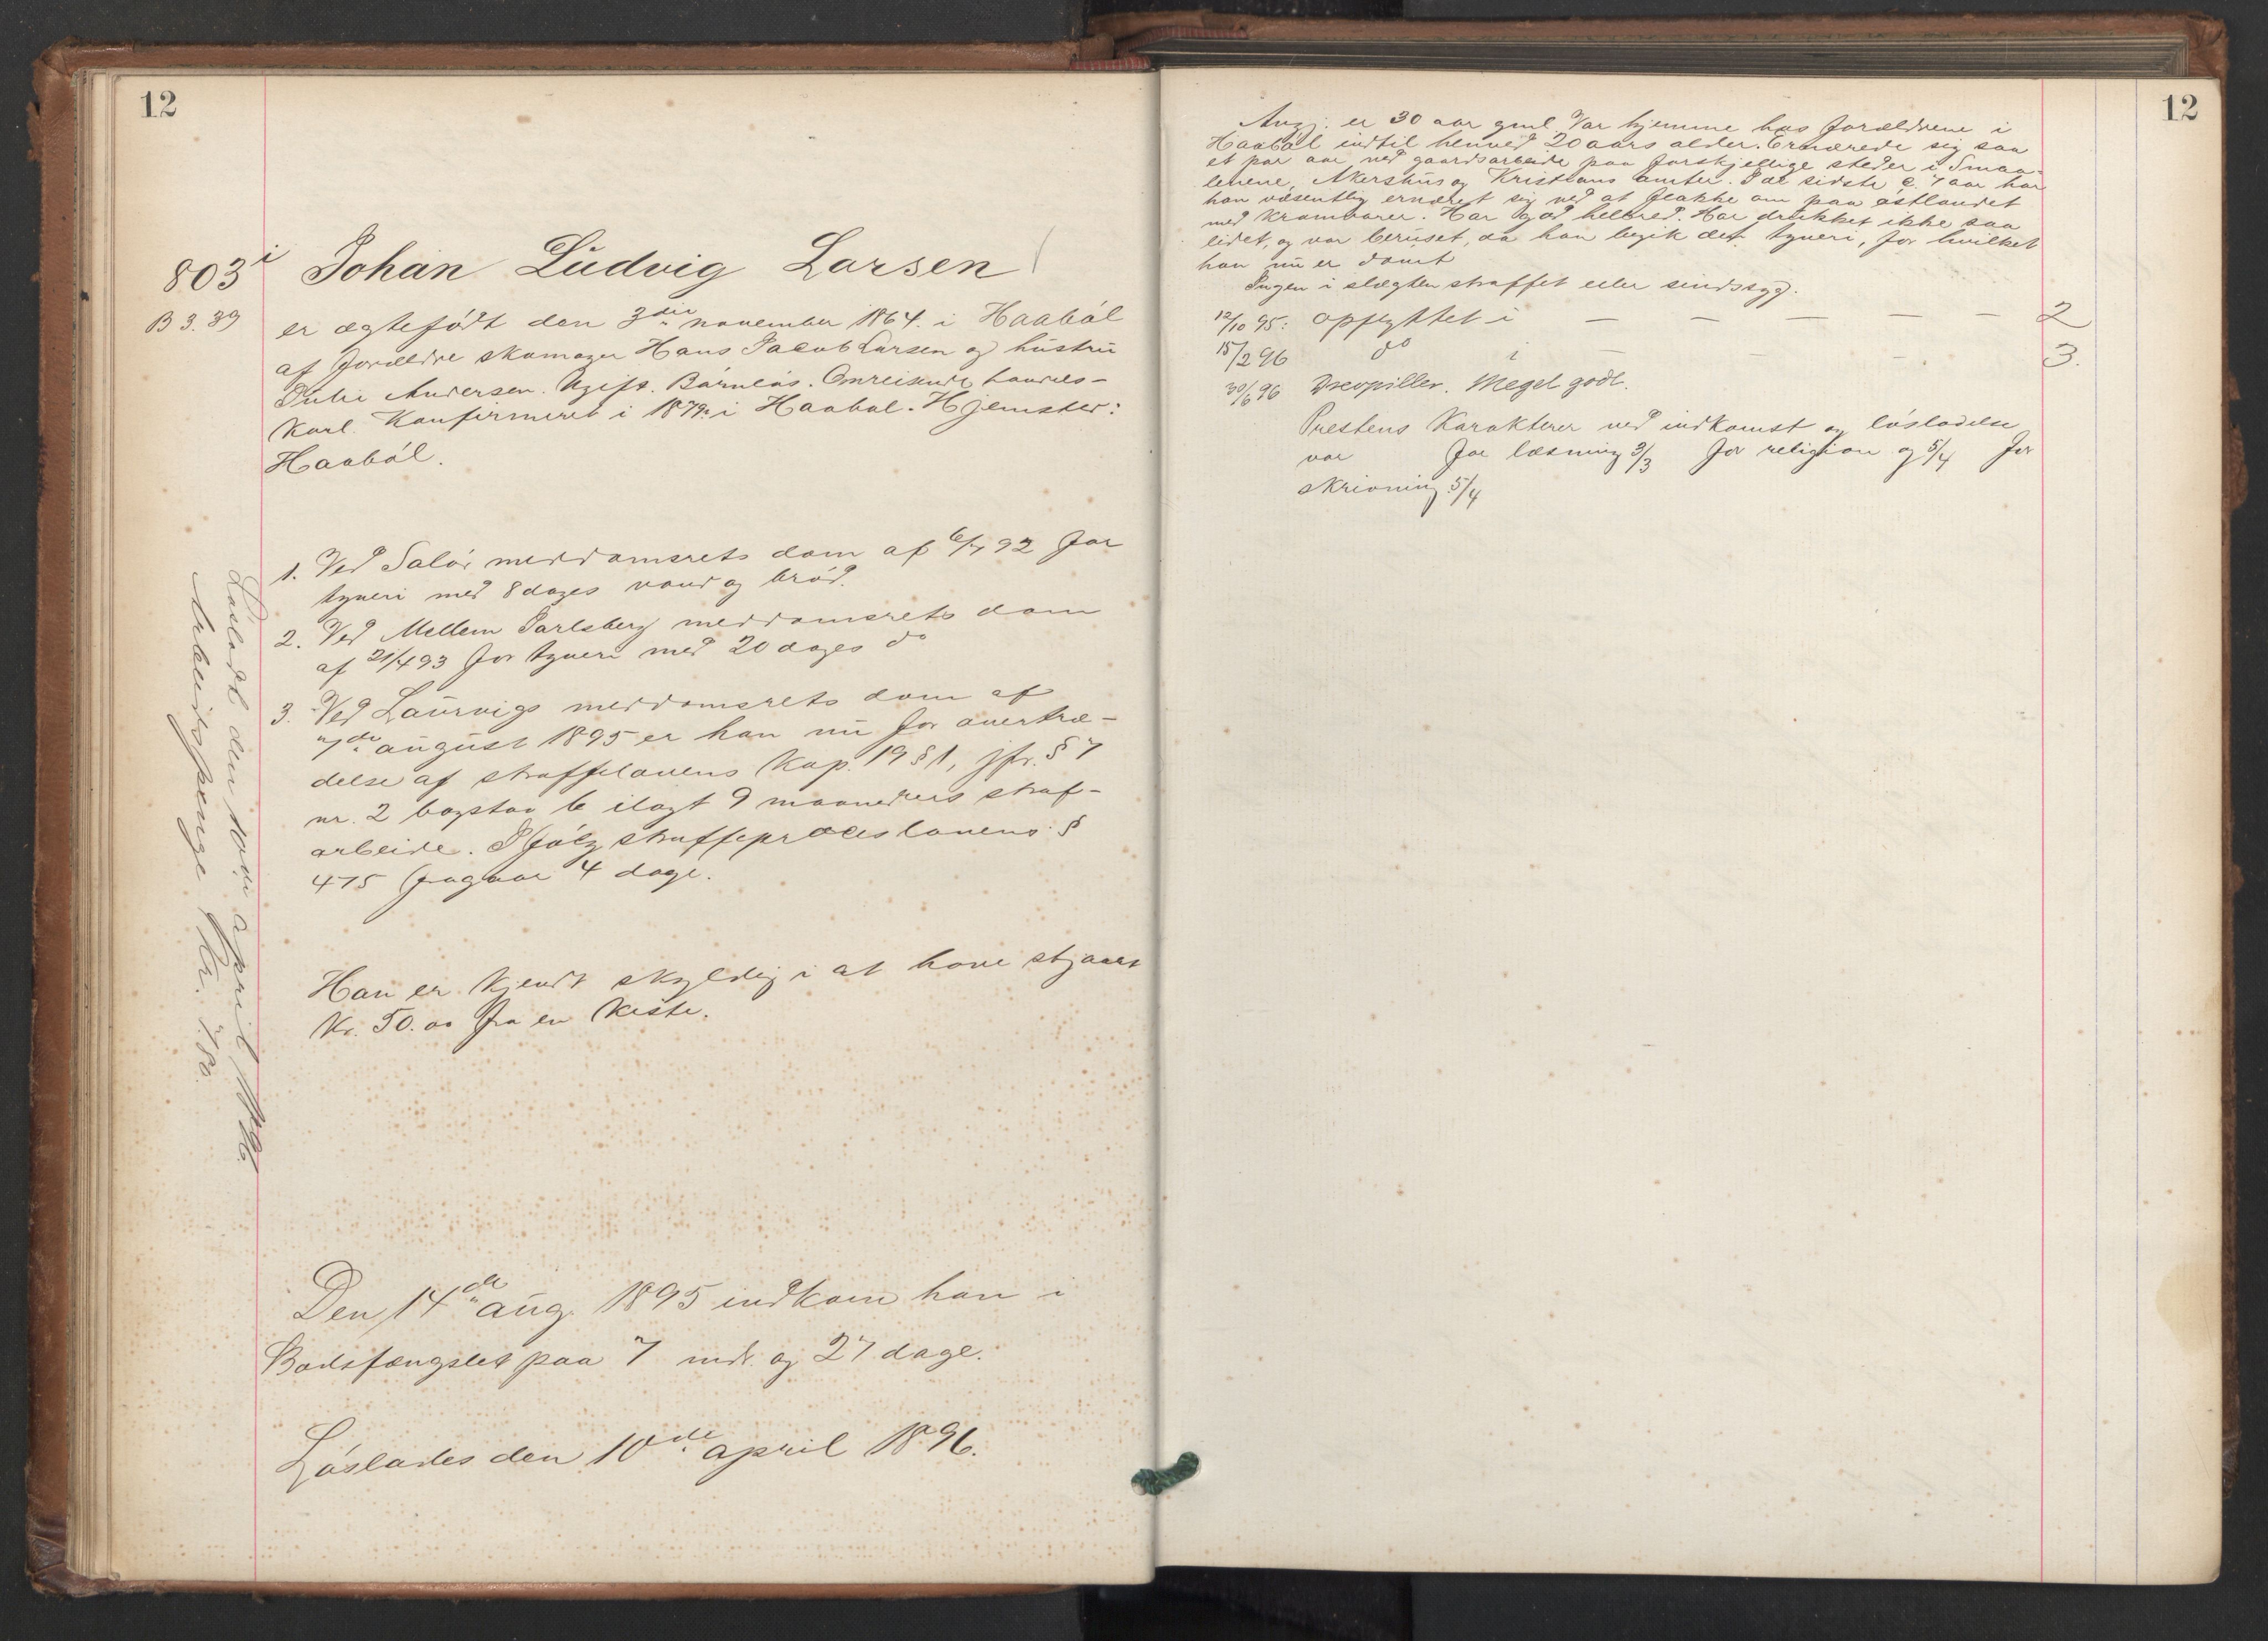 12
803 i
B 3. 39
Johan Ludvig Larsen
er ægtefødt den 3die november 1864 i Haabøl
af forældre skomager Hans Jacob Larsen og hustru
Julie Andersen. Ugift. Barnløs. Omreisende handels-
karl. Konfirmeret i 1879 i Haabøl. Hjemsted:
Haabøl.
1. Ved Solør meddomsrets dom af 6/7 92 for
tyveri med 8 dages vand og brød.
2. Ved Mellem Jarlsberg meddomsrets dom
af 21/4 93 for tyveri med 20 dages do
3. Ved Laurvigs meddomsrets dom af
7de august 1895 er han nu for overtræ-
delse af straffelovens Kap. 19 § 1, jfr. § 7
nr. 2 bogstav b ilagt 9 maaneders straf-
arbeide. Ifølg straffeproceslovens §
475 fragaar 4 dage.
Han er kjendt skyldig i at have stjaalet
Kr. 50.00 fra en kiste.
Den 14de aug. 1895 indkom han i
Bodsfængslet paa 7 mdr. og 27 dage.
Løslades den 10de april 1896.
Løsladt den 10de april 1896.
Arbeidspenge Kr. 7.80.
12
Angj. er 30 aar gml. Var hjemme hos forældrene i
Haabøl indtil henved 20 aars alder. Ernærede sig saa
et par aar ved gaardsarbeide paa forskjellige steder i Smaa-
lenene, Akershus og Kristians amter. I de sidste c. 7 aar har
han væsentlig ernæret sig ved at flakke om paa østlandet
med kramvarer. Har god helbred. Har drukket ikke saa
lidet, og var beruset, da han begik det tyveri, for hvilket
han nu er dømt
Ingen i slægten straffet eller sindssyg.
12/10 95: opflyttet i — — — — — 2
15/2 96 do i — — 3.
30/6 96 Meget godt.
Prestens Karakterer ved indkomst og løsladelse
var for læsning 3/3 for religion og 5/4 for
skrivning 5/4